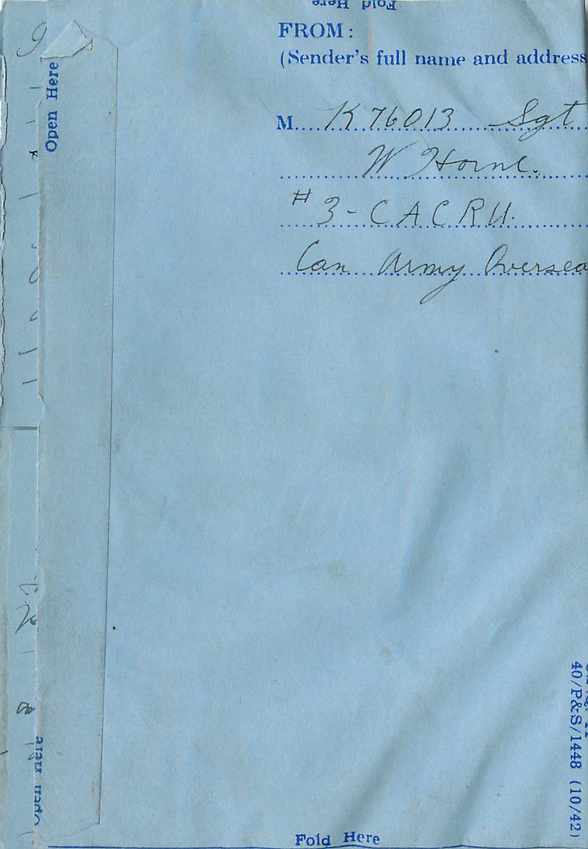 Fold Here
FROM:
(Sender's full name and address
Open Here
M. K 76013 Sgt
W Horne.
# 3 - C A C R U.
Can Army Oversea
40/P&S/1448 (10/42)
Open Here
Fold Here